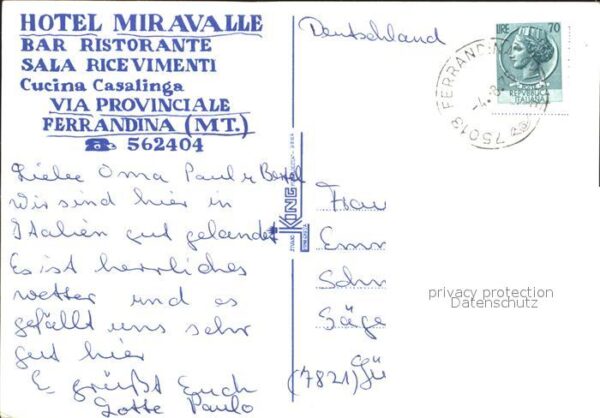 HOTEL MIRAVALLE
BAR RISTORANTE
SALA RICEVIMENTI
Cucina Casalinga
VIA PROVINCIALE
FERRANDINA (MT.)
☎ 562404
Deutschland
LIRE 70
REPVBBLICA
ITALIANA
75013 FERRANDINA
Liebe Oma Paul u
Wir sind hier in
Italien gut gelandet
Es ist herrliches
wetter und es
gefällt uns sehr
gut hier
Es grüßt Euch
Lotte Paulo
KING
Frau
Emm
Schn
Säge
(7821) Gü
privacy protection
Datenschutz